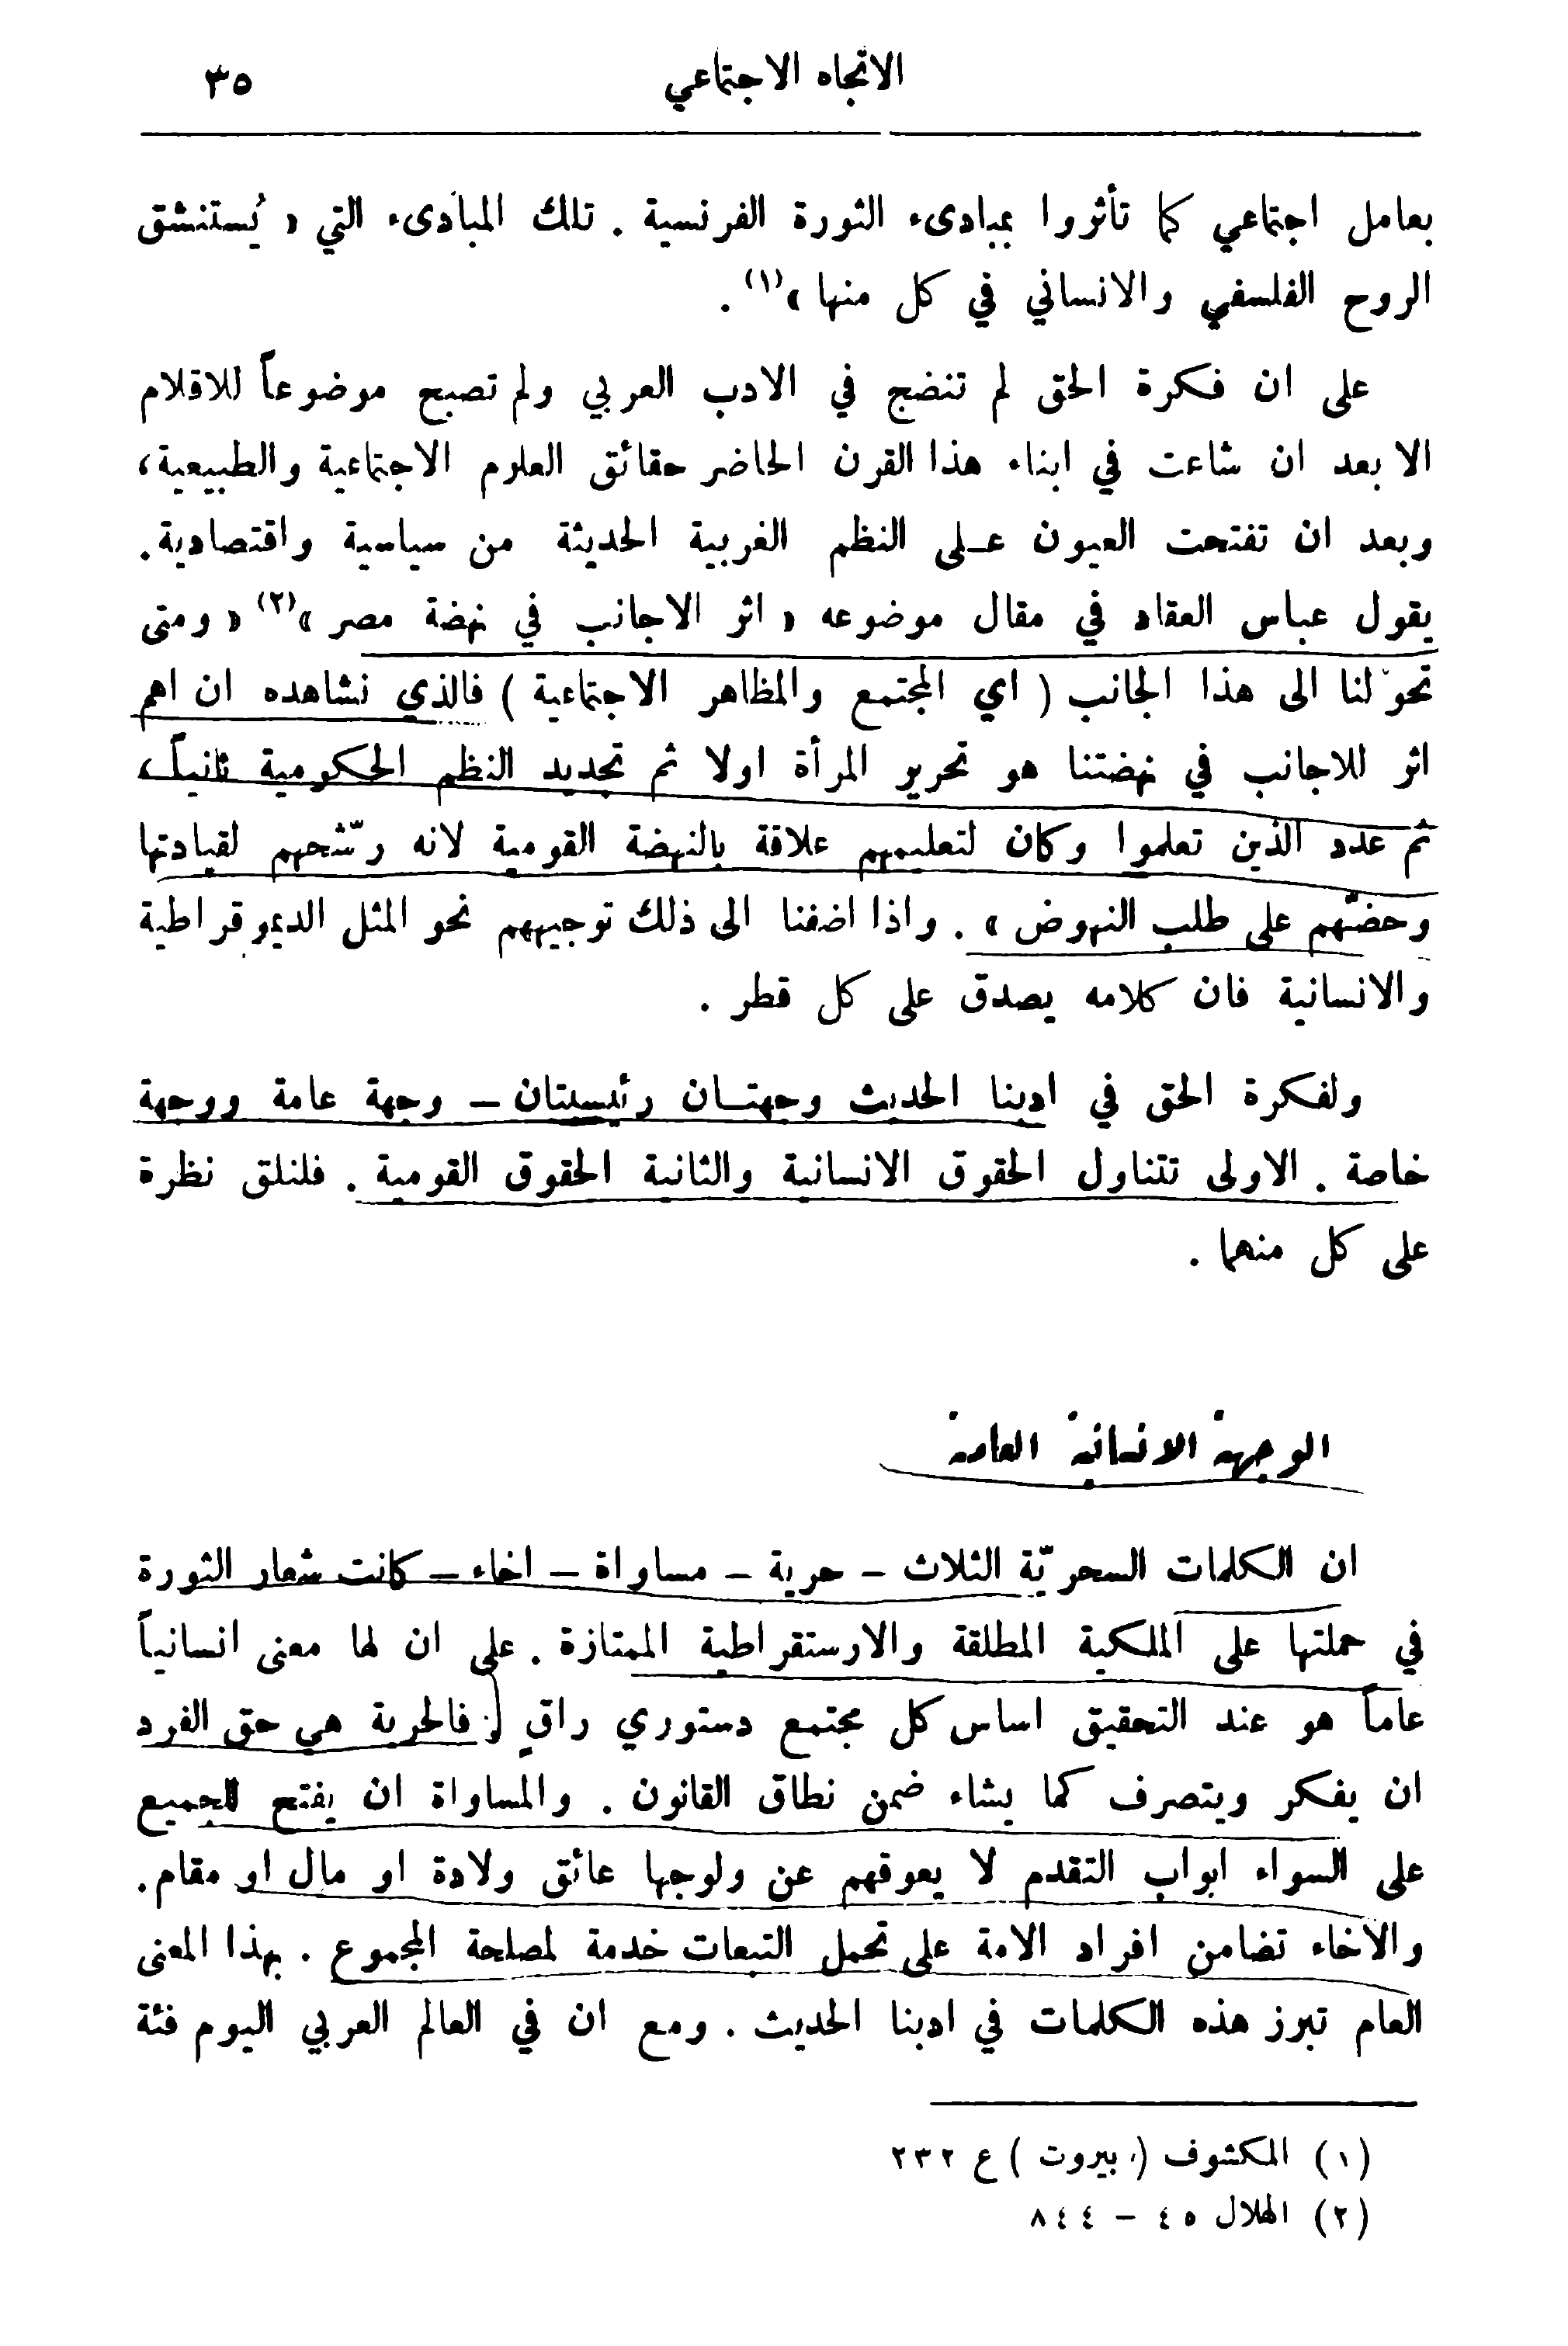 الاتجاه الاجتماعي ٣٥
بعامل اجتماعي كما تأثروا بمبادىء الثورة الفرنسية . تلك المبادىء التي « يُستنشق
الروح الفلسفي والانساني في كل منها »(١) .
على ان فكرة الحق لم تنضج في الادب العربي ولم تصبح موضوعاً للاقلام
الا بعد ان شاعت في ابناء هذا القرن الحاضر حقائق العلوم الاجتماعية والطبيعية،
وبعد ان تفتحت العيون عـلى النظم الغربية الحديثة من سياسية واقتصادية.
يقول عباس العقاد في مقال موضوعه « اثر الاجانب في نهضة مصر »(٢) « ومتى
تحوّلنا الى هذا الجانب ( اي المجتمع والمظاهر الاجتماعية ) فالذي نشاهده ان اهم
اثر للاجانب في نهضتنا هو تحرير المرأة اولا ثم تجديد النظم الحكومية ثانياً،
ثم عدد الذين تعلموا وكان لتعليمهم علاقة بالنهضة القومية لانه رشّحهم لقيادتها
وحضّهم على طلب النهوض » . واذا اضفنا الى ذلك توجيههم نحو المثل الديموقراطية
والانسانية فان كلامه يصدق على كل قطر .
ولفكرة الحق في ادبنا الحديث وجهتـان رئيسيتان – وجهة عامة ووجهة
خاصة . الاولى تتناول الحقوق الانسانية والثانية الحقوق القومية . فلنلق نظرة
على كل منهما .
الوجهة الانسانية العامة
ان الكلمات السحريّة الثلاث – حرية – مساواة – اخاء – كانت شعار الثورة
في حملتها على الملكية المطلقة والارستقراطية الممتازة . على ان لها معنى انسانياً
عاماً هو عند التحقيق اساس كل مجتمع دستوري راقٍ . فالحرية هي حق الفرد
ان يفكر ويتصرف كما يشاء ضمن نطاق القانون . والمساواة ان يفتح للجميع
على السواء ابواب التقدم لا يعوقهم عن ولوجها عائق ولادة او مال او مقام.
والاخاء تضامن افراد الامة على تحمل التبعات خدمة لمصلحة المجموع . بهذا المعنى
العام تبرز هذه الكلمات في ادبنا الحديث . ومع ان في العالم العربي اليوم فئة
(١) المكشوف ( بيروت ) ع ٢٣٢
(٢) الهلال ٤٥ – ٨٤٤